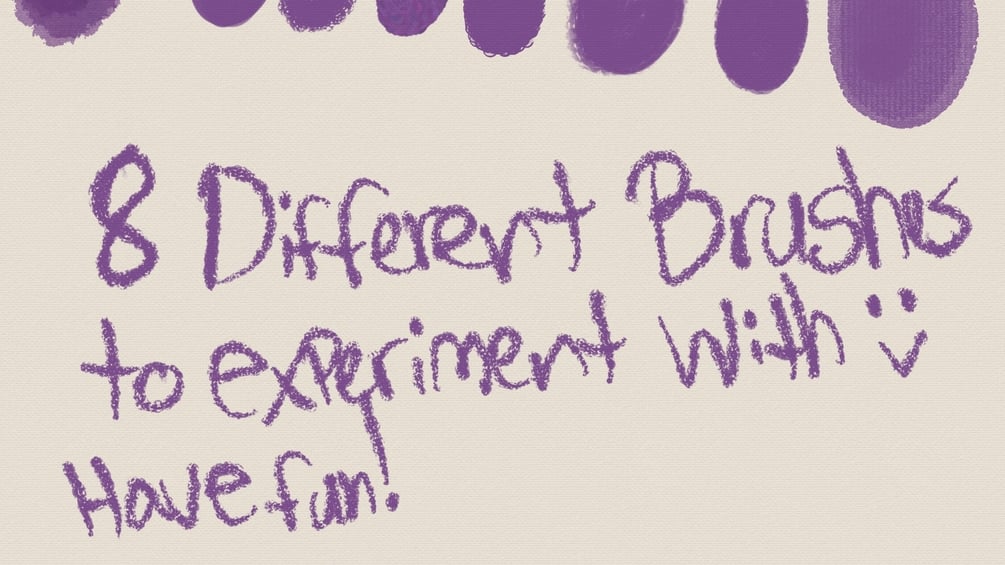 8 Different Brushes
to experiment With :)
Have fun!